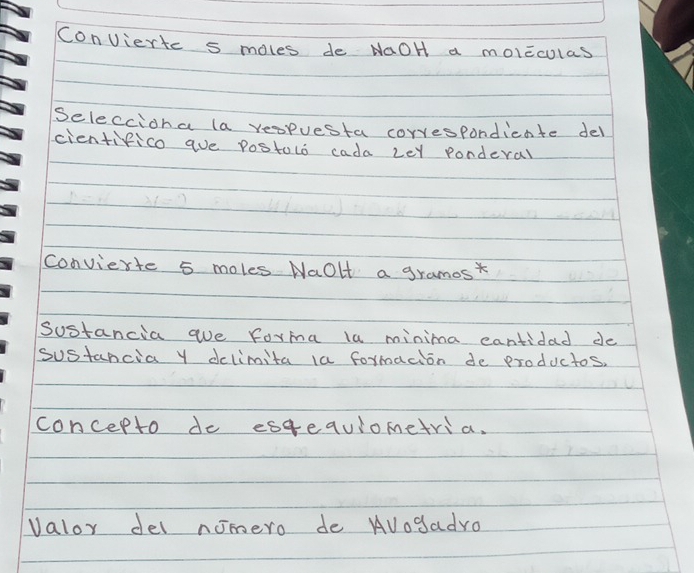 Convierte 5 moles de NaOH a moléculas
Selecciona la respuesta correspondiente del
cientifico que Postuló cada Ley Ponderal
Convierte 5 moles NaOH a gramos*
Sustancia que Forma la minima cantidad de
sustancia y delimita la formación de Productos.
Concepto de esqequiometria.
Valor del número de Avogadro